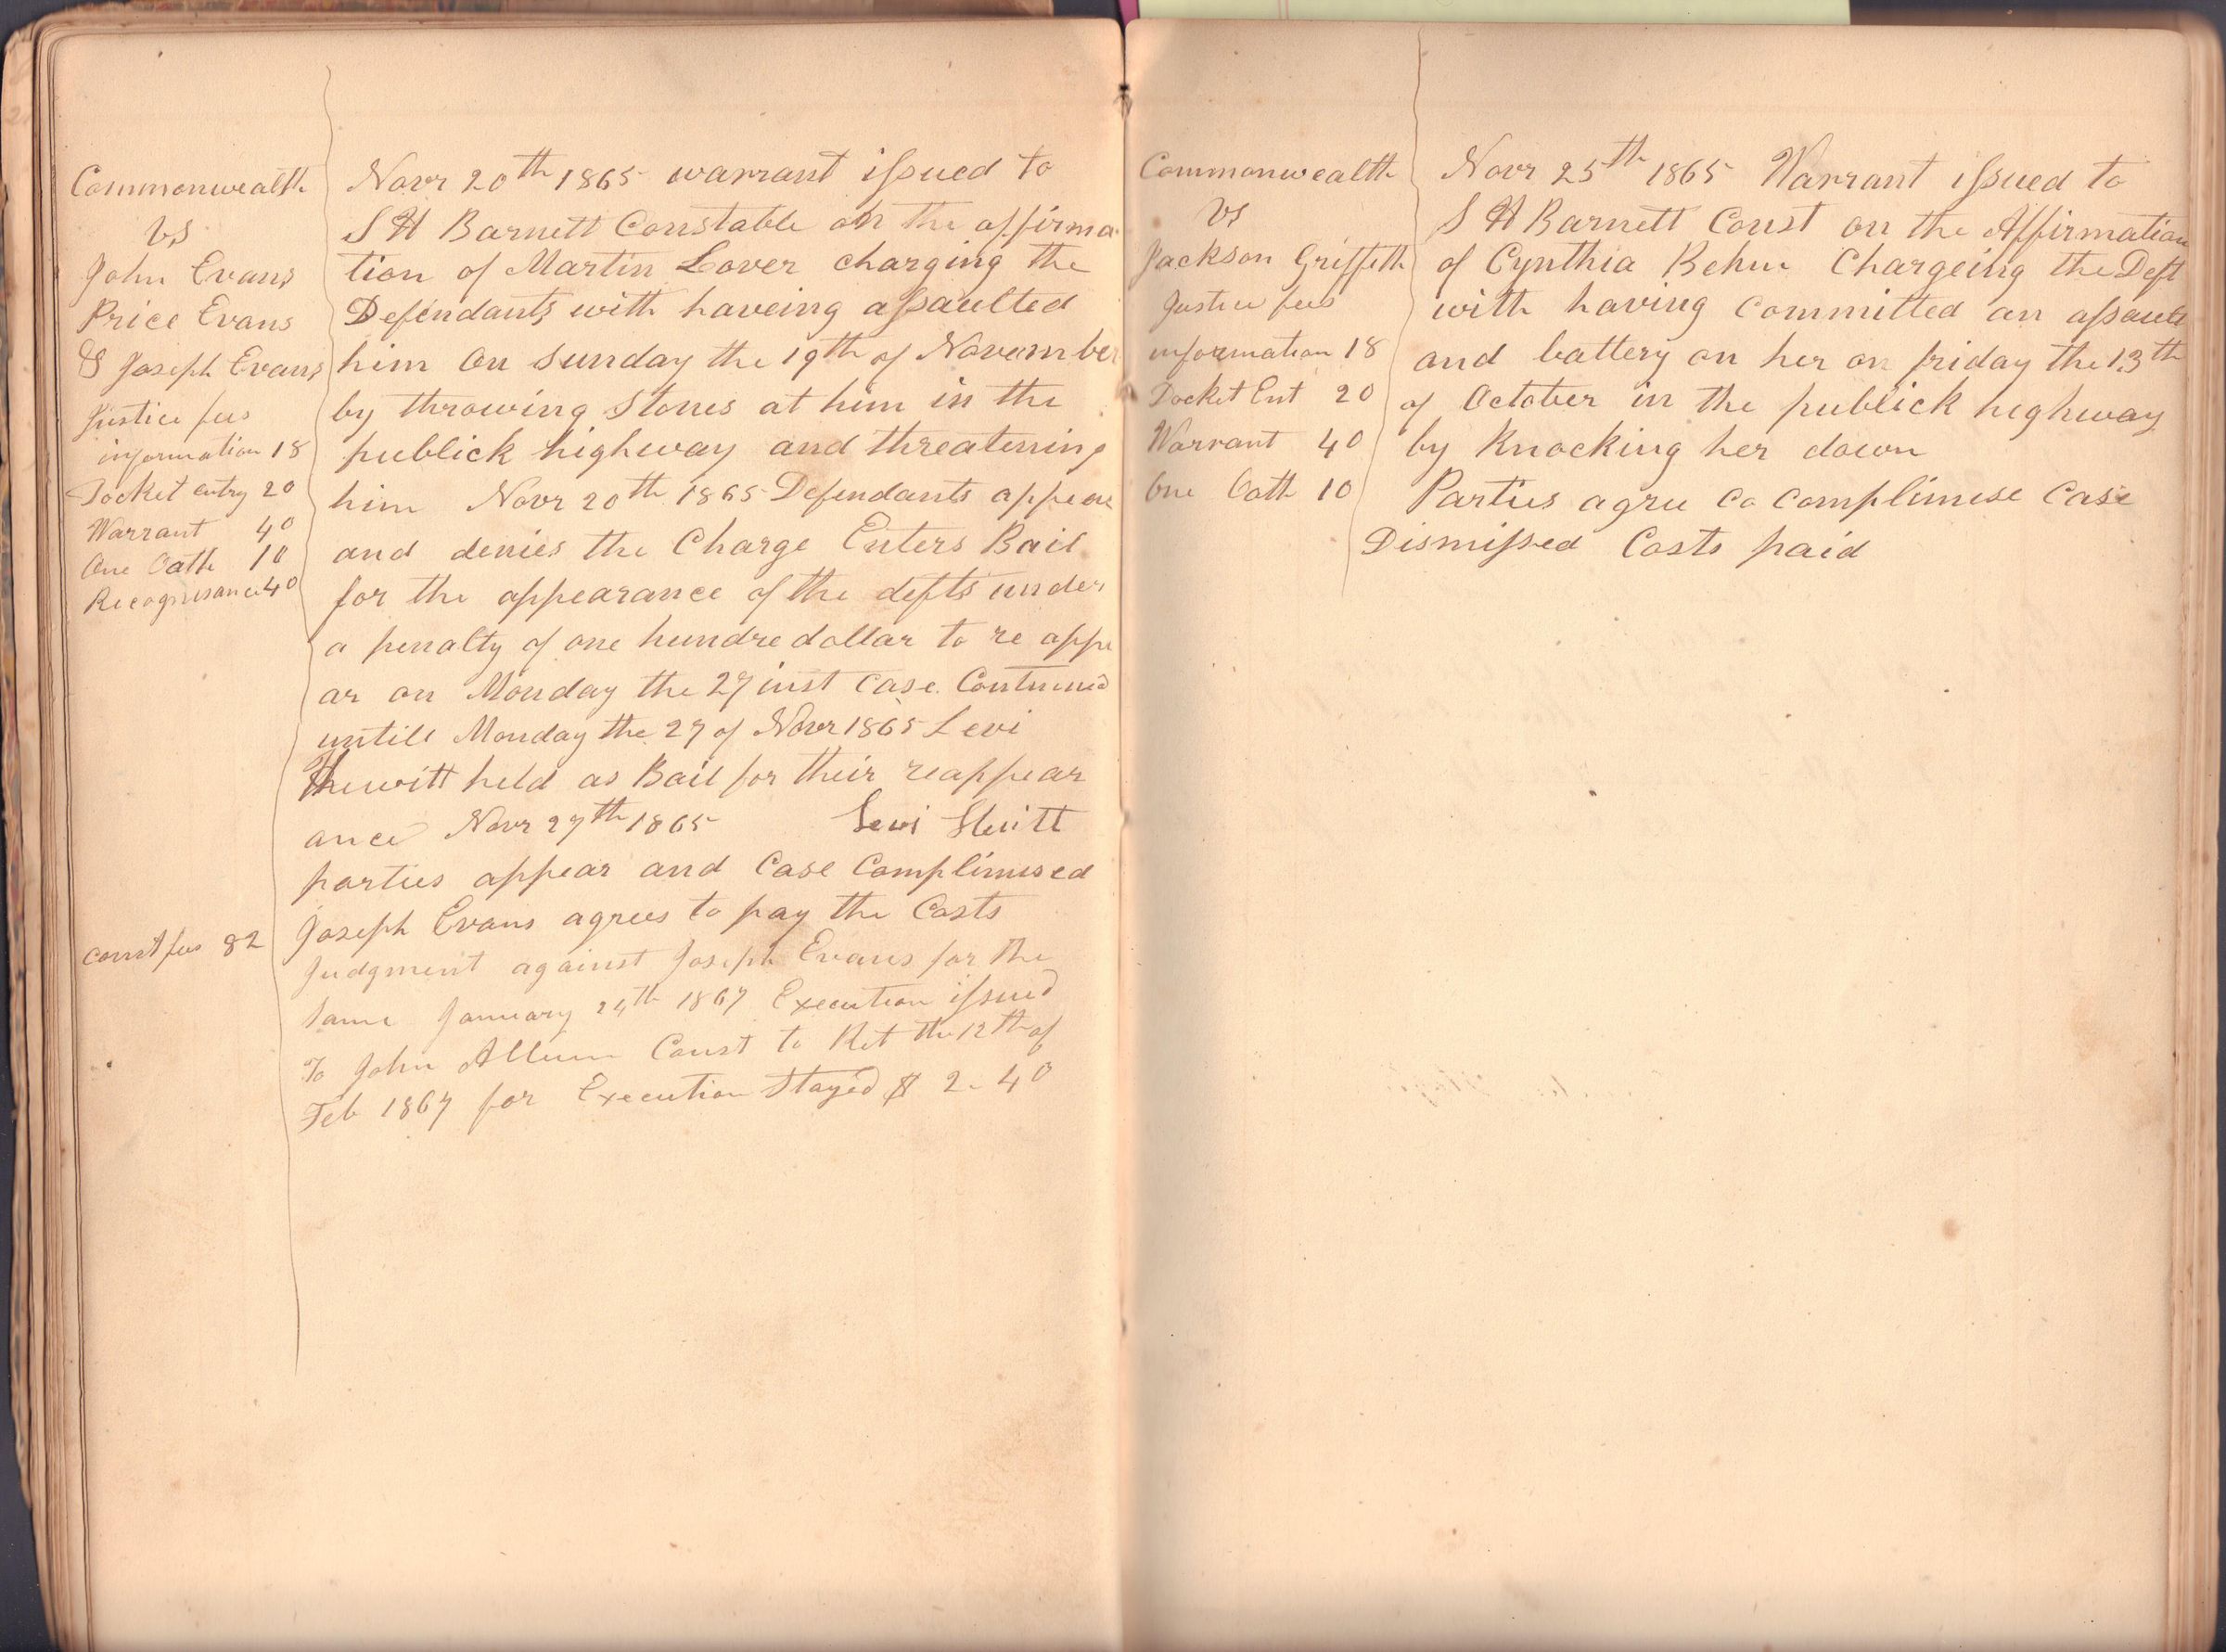 Commonwealth
vs
John Evans
Price Evans
& Joseph Evans
Justice fees
information 18
Docket entry 20
Warrant 40
One Oath 10
Recognisance 40
const fees 82
Novr 20th 1865 warrant issued to
S H Barnett Constable on the affirma
tion of Martin Lover charging the
Defendants with haveing assaulted
him on Sunday the 19th of November
by throwing Stones at him in the
publick highway and threatening
him Novr 20th 1865 Defendants appear
and denies the Charge Enters Bail
for the appearance of the defts under
a penalty of one hundre dollar to re appe
ar on Monday the 27 inst Case Continued
untill Monday the 27 of Novr 1865 Levi
Hewitt held as Bail for their reappear
ance Novr 27th 1865 Levi
parties appear and Case Complimised
Joseph Evans agrees to pay the Costs
Judgment against Joseph Evans for the
Same January 24th 1867 Execution issued
To John Allum Const to Ret the 12th of
Feb 1867 for Execution Stayed $ 2-40
Commonwealth
vs
Jackson Griffeth
Justice fees
information 18
Docket Ent 20
Warrant 40
One Oath 10
Novr 25th 1865 Warrant issued to
S H Barnett Const on the Affirmation
of Cynthia Behm Chargeing the Deft
with having Committed an assault
and battery on her on friday the 13th
of October in the publick highway
by Knocking her down
Parties agree Co Complimise Case
Dismissed Costs paid